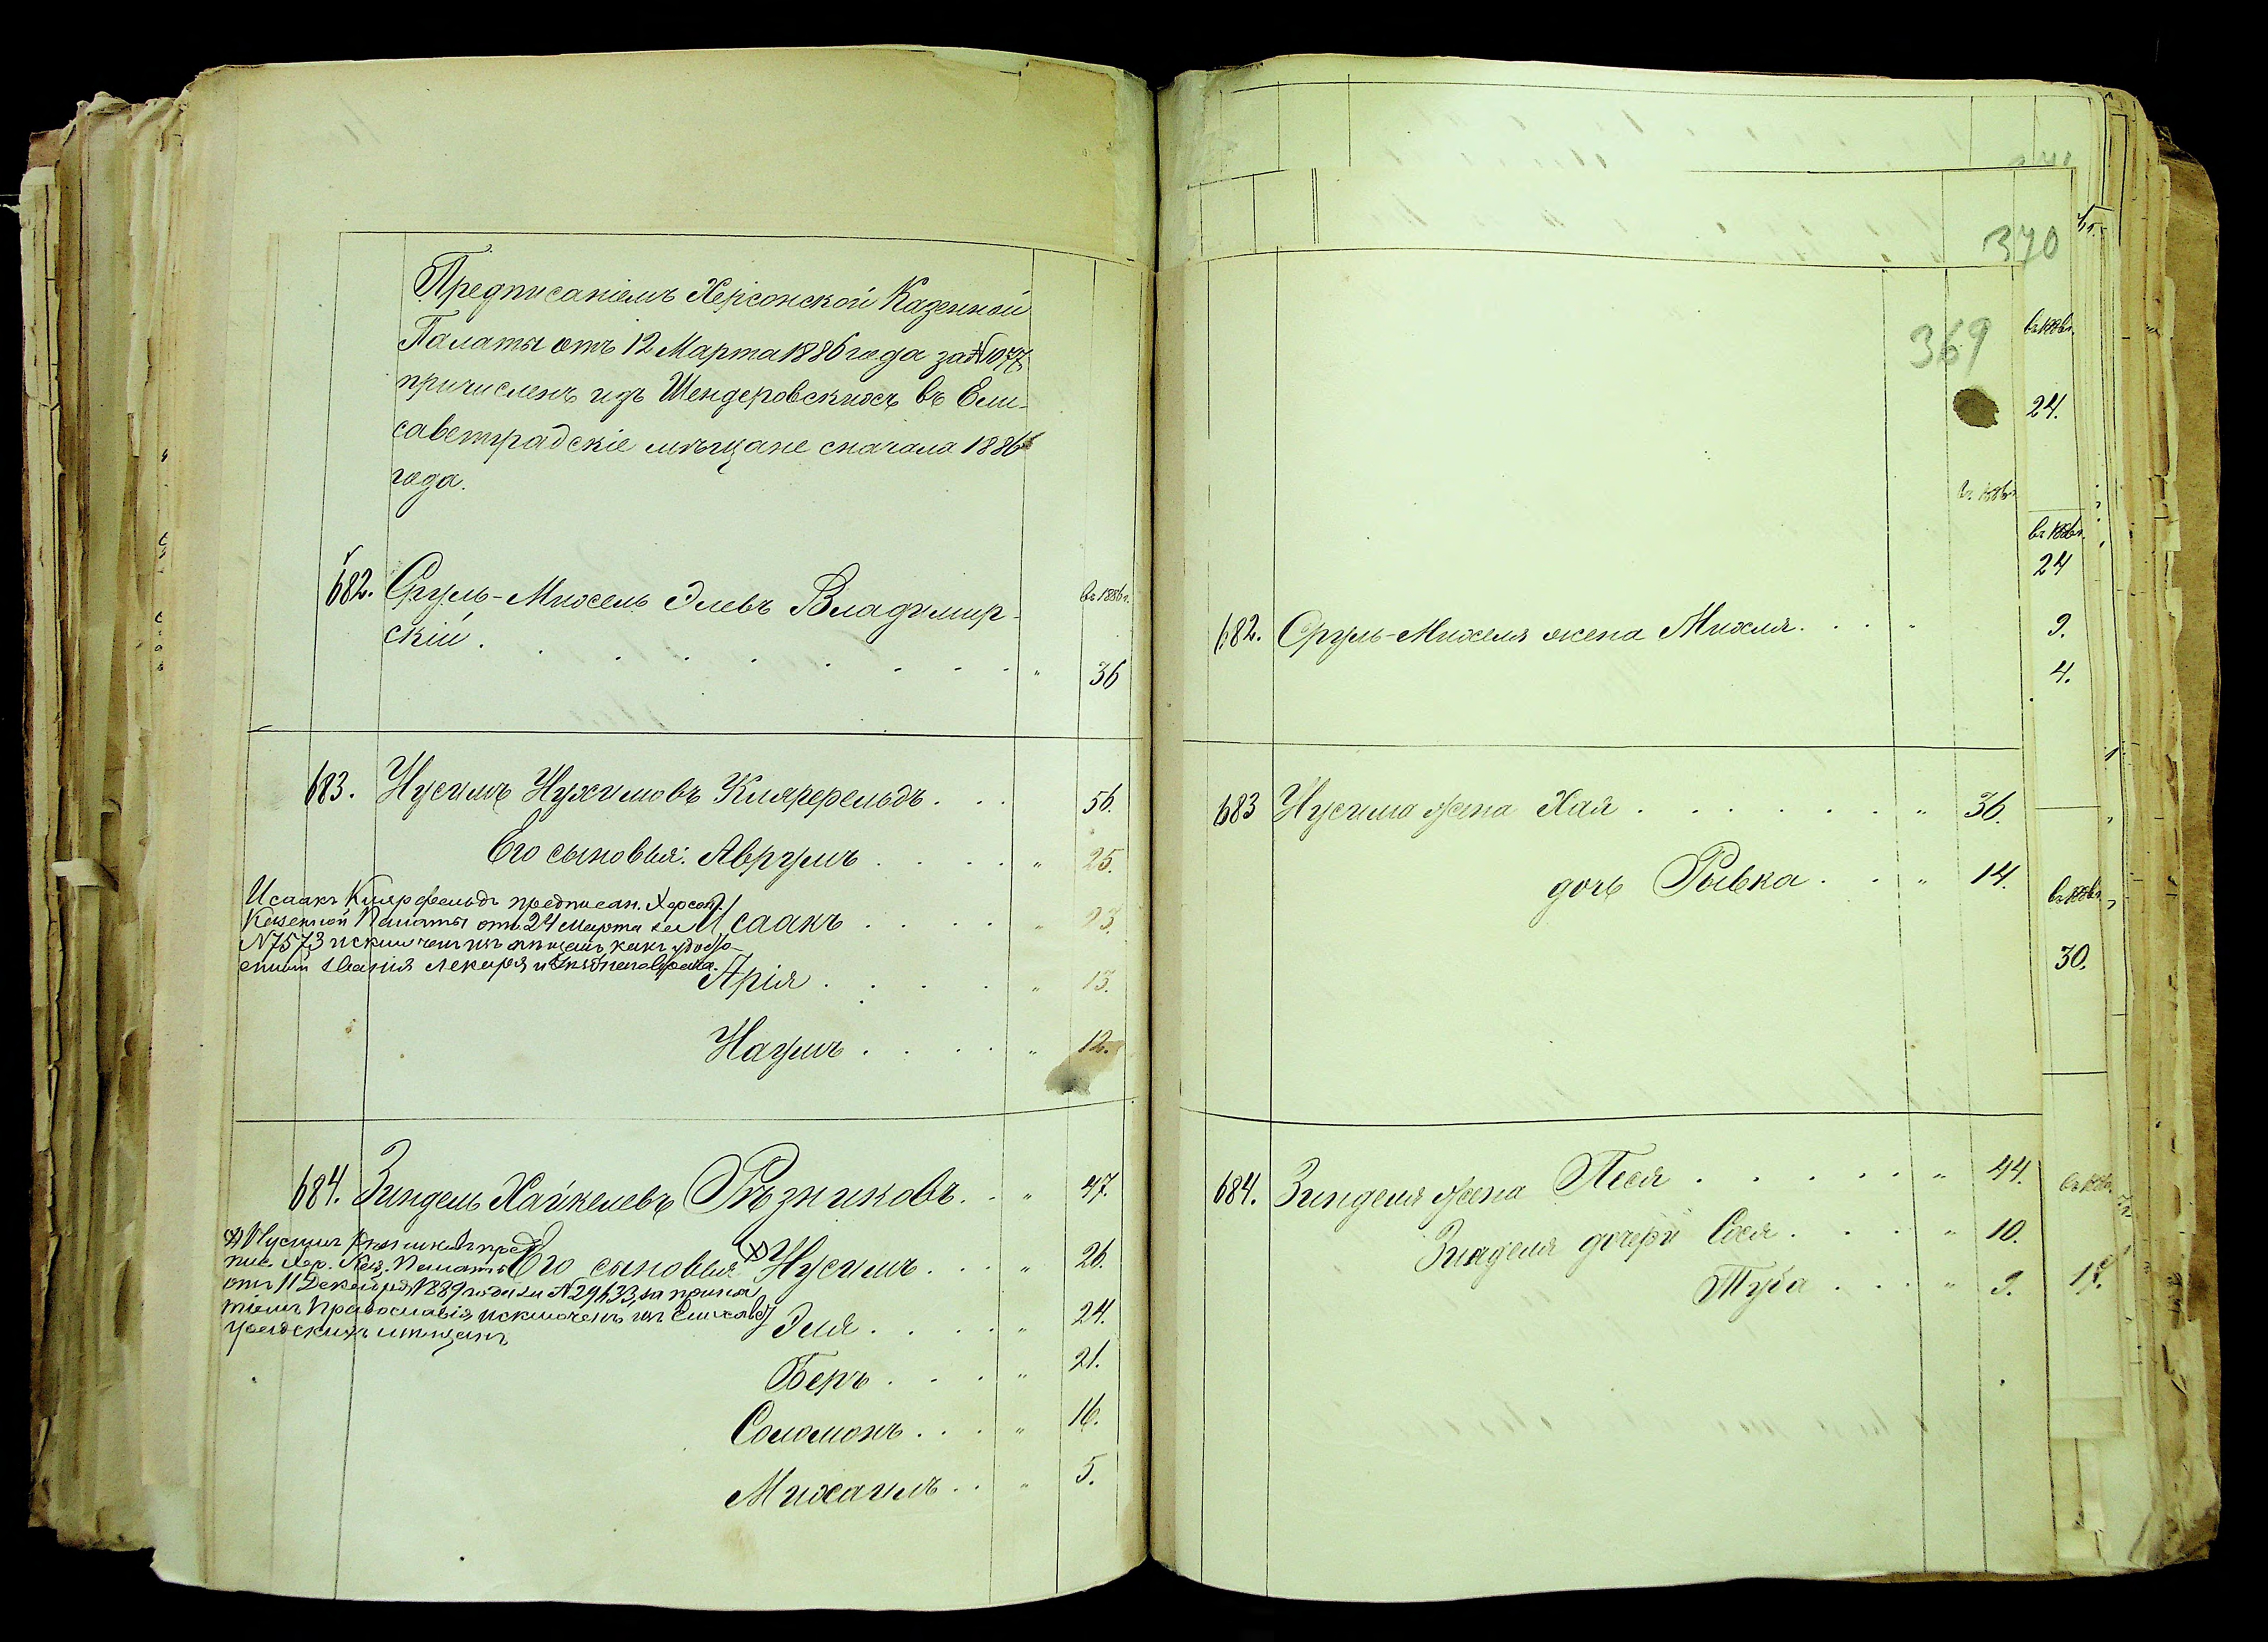 Предписаніемъ Херсонской Казенной
Палаты отъ 12 Марта 1886 года за № 1077
причисленъ изъ Шендеровскихъ въ Ели-
саветградскіе мѣщане сначала 1886
года.
въ 1886 г.
682. Сруль-Михель Элевъ Владимир-
скій . . . . . . . . " 36
683. Нусимъ Нухимовъ Клярфельдъ . . . 56.
Его сыновья: Аврумъ . . . . " 25.
Исаакъ . . . . " 23.
Исаакъ Клярфельдъ предписан. Херсон.
Казенной Палаты отъ 24 Марта за
№ 7573 исключенъ изъ мѣщанъ какъ удосто-
енный званія лекаря
Арія . . . . " 13.
Наумъ . . . . " 12.
684. Зиндель Хайкелевъ Рѣзниковъ . . " 47.
Его сыновья х) Нусимъ . . . " 26.
х) Нусимъ Рѣзниковъ пред
пис. Хер. Каз. Палаты
отъ 11 Декабря 1889 года за № 29633, за приня
тіемъ Православія исключенъ изъ Елисавет
градскихъ мѣщанъ
Эля . . . . " 24.
Беръ . . . . " 21.
Соломонъ . . . " 16.
Михаилъ . . " 5.
370
369
въ 1886 г.
24.
въ 1886 г.
въ 1886 г.
24
682. Сруль-Михеля жена Михля . . . "
9.
4.
683 Нусима жена Хая . . . . . . " 36.
дочь Рывка . . " 14.
въ 1886 г.
30.
684. Зинделя жена Песя . . . . . " 44.
Зинделя дочери Сося . . . " 10.
Туба . . . " 9.
въ 1886 г.